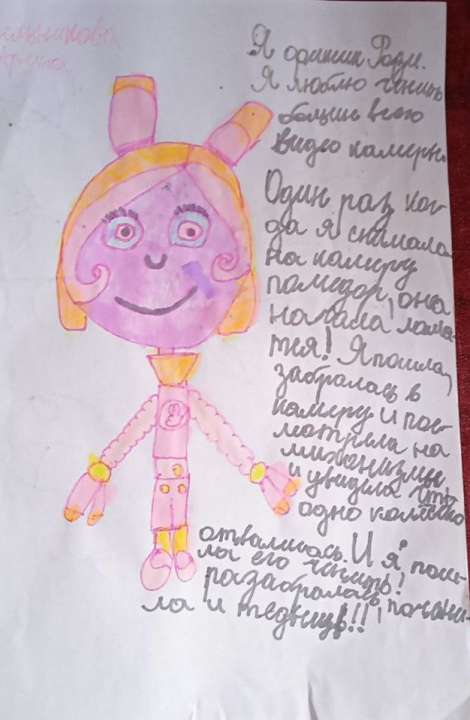 Я фиксик Фаги.
Я люблю чинить
больше всего
видео камеры.
Один раз ког
да я снимала
на камеру
помидор, она
начала лома
тся! Я пошла,
забралась в
камеру и пос
мотрела на
миханизмы
и увидила что
одно колёсико
отвалилось. И я пош
ла его чинить!
разабралась, почини
ла и тедыщь!!!